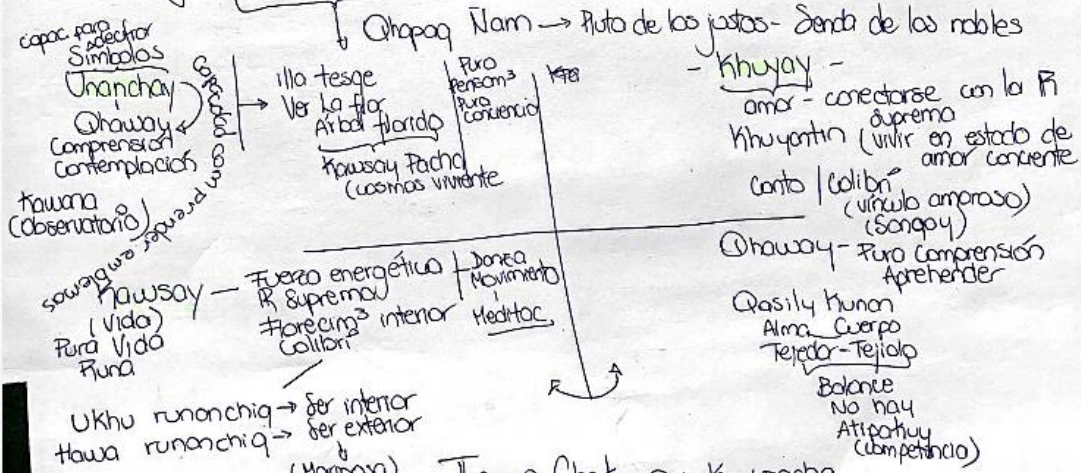 Qhapaq Ñam → Ruta de los justos - Senda de los nobles
capac para
Símbolos
Unanchay
Qhaway
Comprensión
Contemplación
Kawana
(Observatorio)
capacidad comprender ambienos
illa tesqe
Ver La flor
Árbol florido
Kawsay Pacha
(cosmos viviente
Puro
Pensam³
Pura
conciencia
- Khuyay -
amor - conectarse con la R
suprema
Khuyantin (vivir en estado de
amor conciente
Canto / Colibrí
(vínculo amoroso)
(Sonqoy)
Qhaway - Pura Comprensión
Aprehender
Qasily Kunan
Alma Cuerpo
Tejedor - Tejido
Balance
No hay
Atipakuy
(competencia)
Kawsay — Fuerza energética
(Vida)
Pura Vida
Runa
R Suprema
Florecim³ interior
Colibrí
Danza
Movimiento
Meditac
Ukhu runanchiq → Ser interior
Hawa runanchiq → Ser exterior